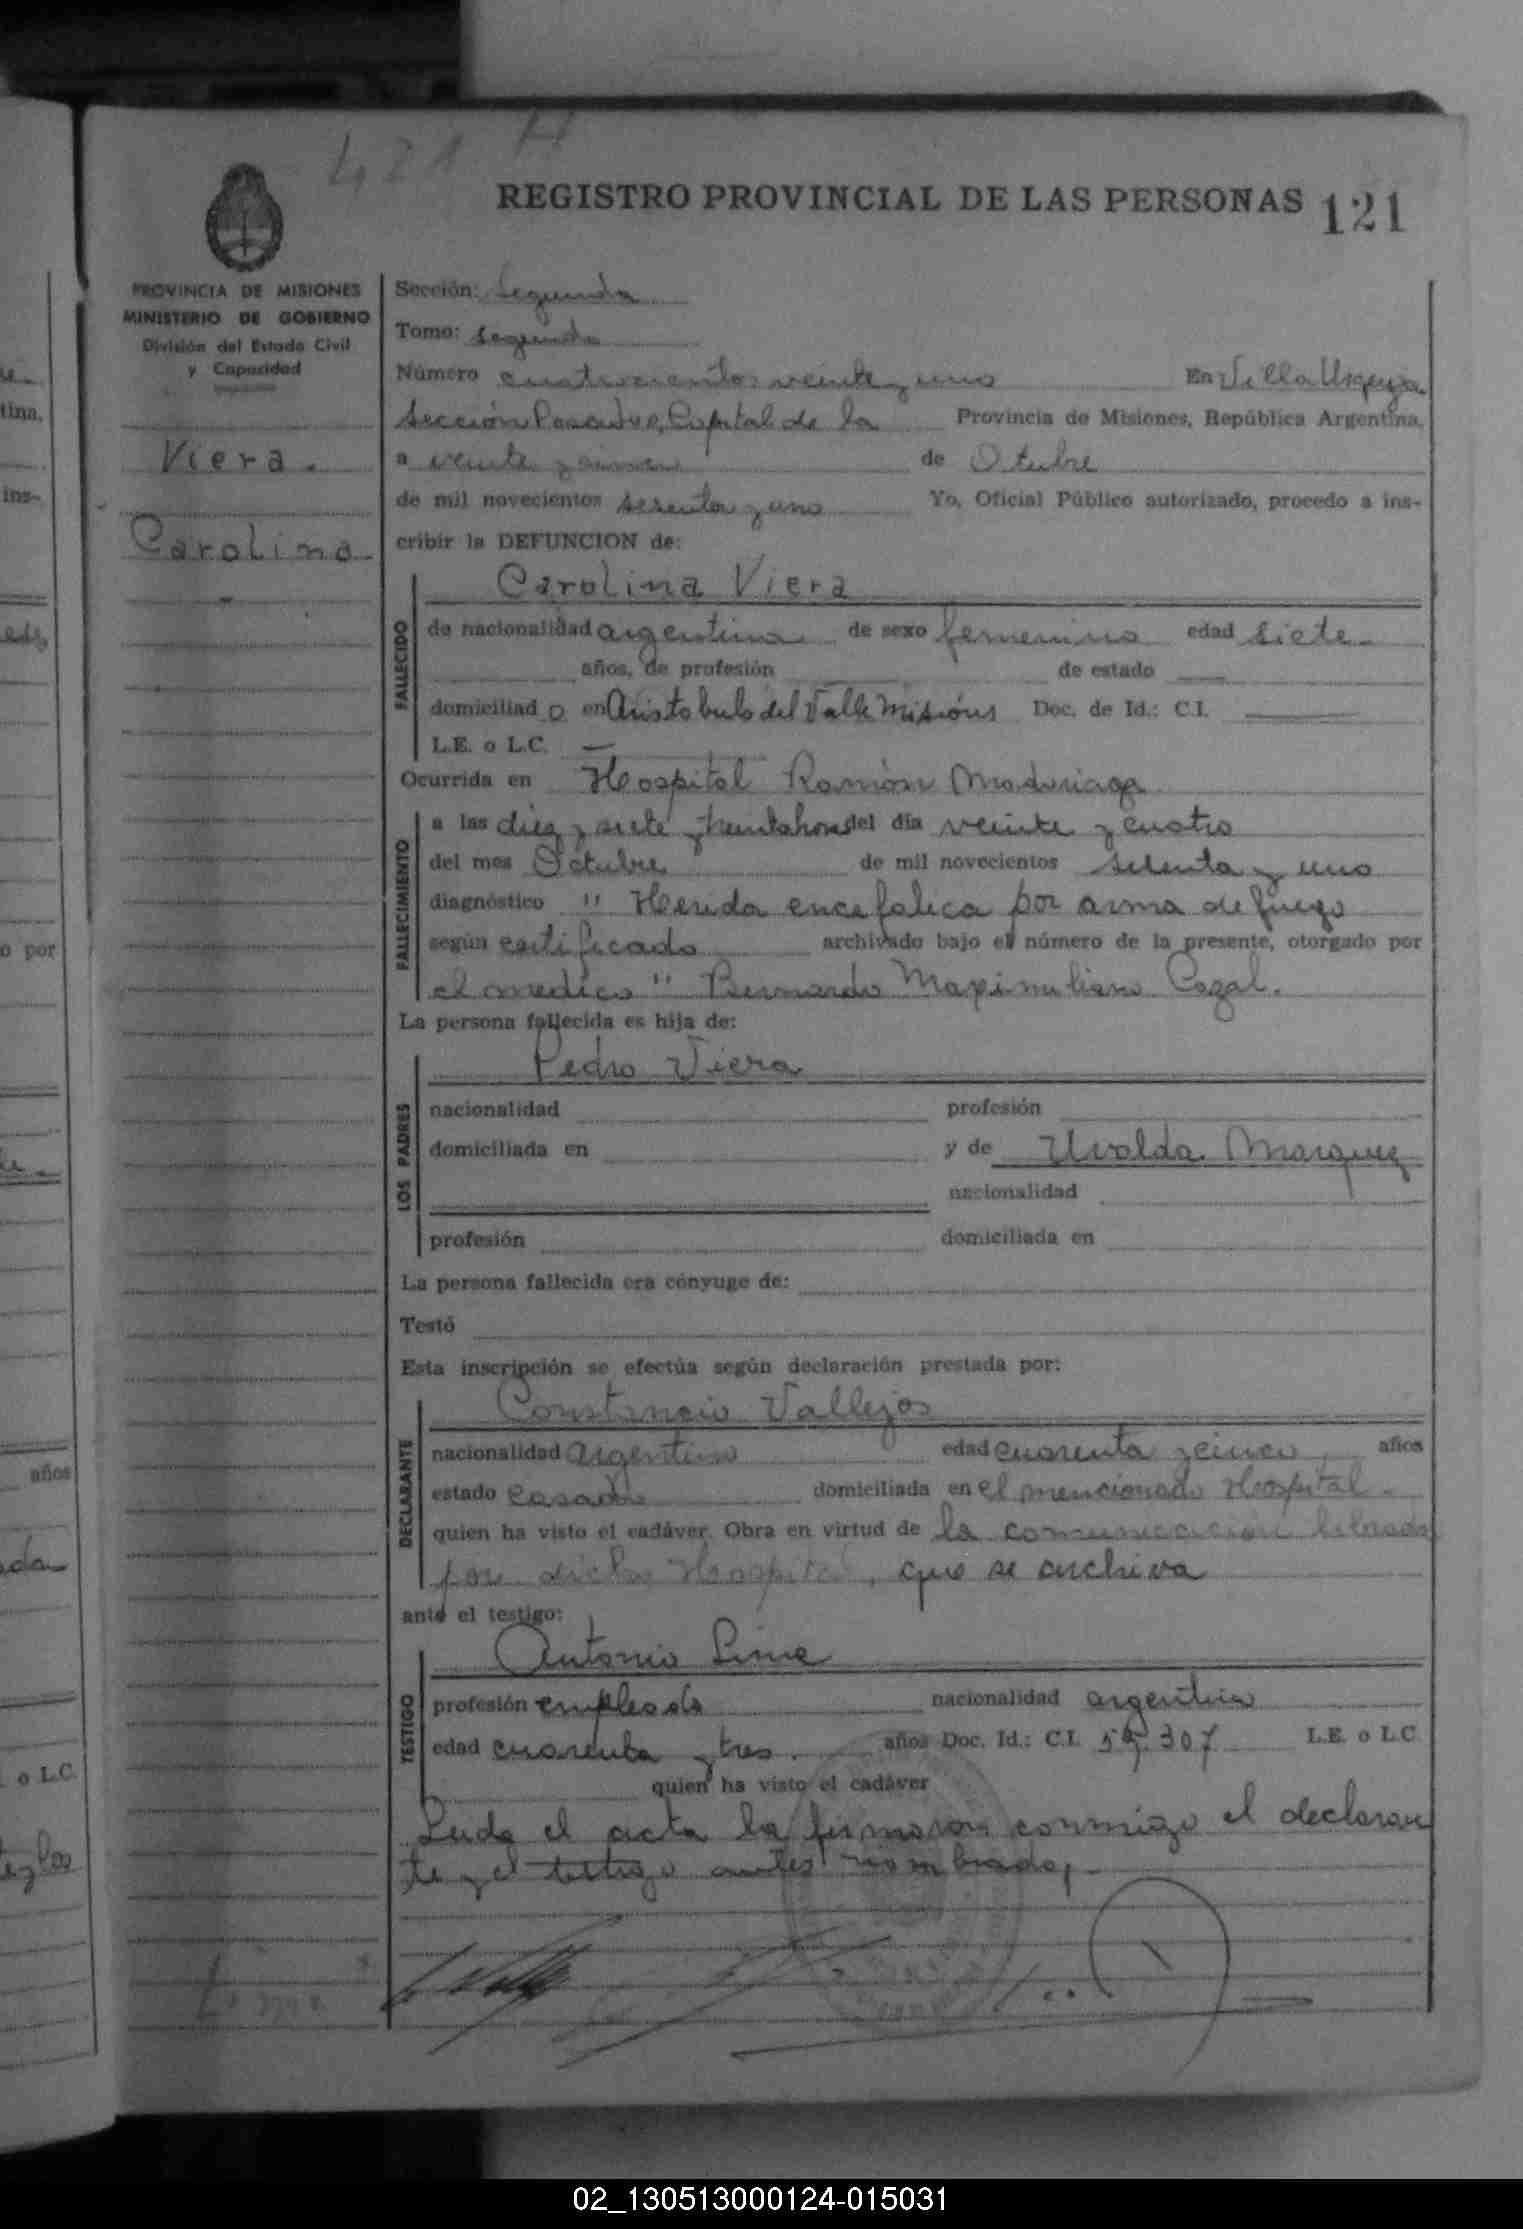 421 H
REGISTRO PROVINCIAL DE LAS PERSONAS 121
PROVINCIA DE MISIONES
MINISTERIO DE GOBIERNO
División del Estado Civil
y Capacidad
Viera.
Carolina
Sección: Segunda
Tomo: segundo
Número cuatrocientos veinte y uno En Villa Urquiza
Sección Posadas, Capital de la Provincia de Misiones, República Argentina,
a veinte y cinco de Otubre
de mil novecientos sesenta y uno Yo, Oficial Público autorizado, procedo a ins-
cribir la DEFUNCION de:
Carolina Viera
FALLECIDO
de nacionalidad argentina de sexo femenino edad siete
años, de profesión de estado
domiciliad o en Aristobulo del Valle Misiones Doc. de Id.: C.I.
L.E. o L.C.
Ocurrida en Hospital Ramón Madariaga
FALLECIMIENTO
a las diez y siete y treinta horas del día veinte y cuatro
del mes Octubre de mil novecientos sesenta y uno
diagnóstico " Herida encefalica por arma de fuego
según certificado archivado bajo el número de la presente, otorgado por
el medico " Bernardo Maximiliano Cazal.
La persona fallecida es hija de:
Pedro Viera
LOS PADRES
nacionalidad profesión
domiciliada en y de Uvalda Marquez
nacionalidad
profesión domiciliada en
La persona fallecida era cónyuge de:
Testó
Esta inscripción se efectúa según declaración prestada por:
Constancio Vallejos
DECLARANTE
nacionalidad argentino edad cuarenta y cinco años
estado casado domiciliada en el mencionado Hospital.
quien ha visto el cadáver. Obra en virtud de la comunicación librada
por dicho Hospital, que se archiva
ante el testigo:
Antonio
TESTIGO
profesión empleado nacionalidad argentina
edad cuarenta y tres. años Doc. Id.: C.I. 307 L.E. o L.C.
quien ha visto el cadáver
Leida el acta la firmaron conmigo el declaran
te y el testigo antes nombrado,-
02_130513000124-015031